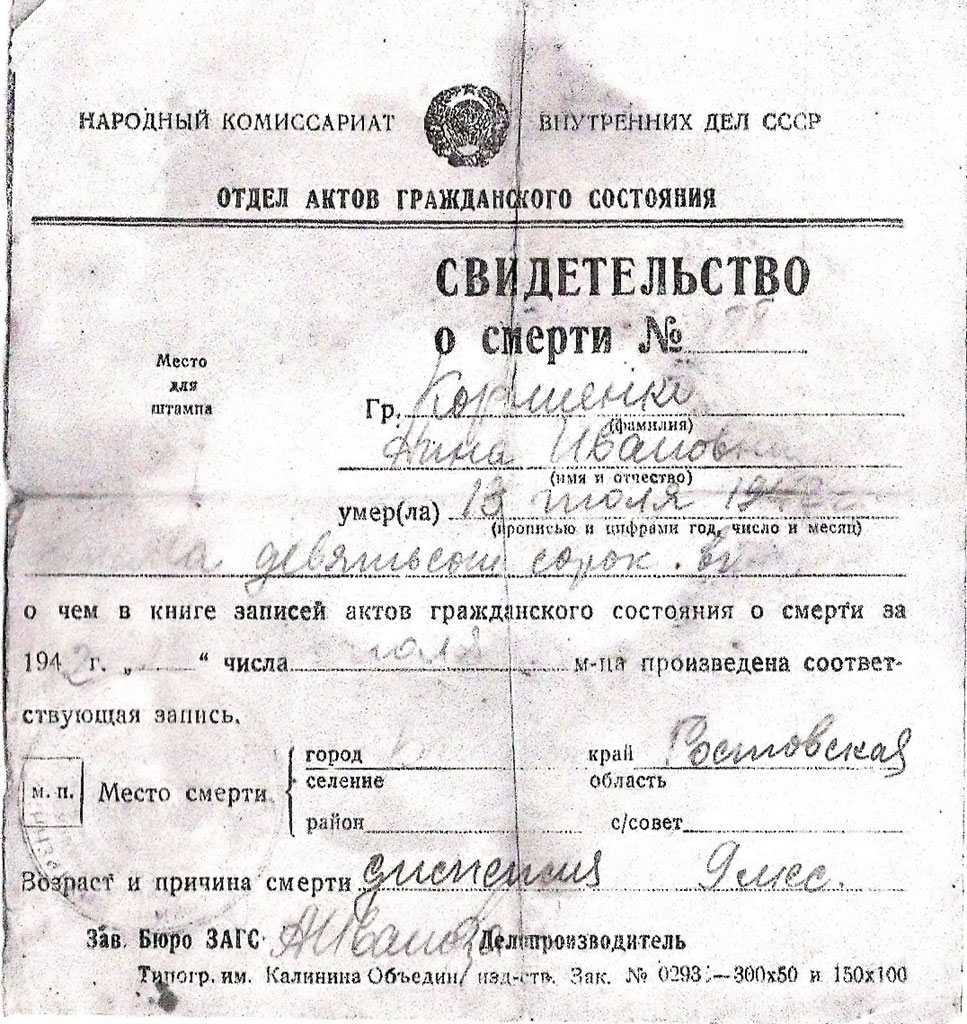 НАРОДНЫЙ КОМИССАРИАТ ВНУТРЕННИХ ДЕЛ СССР
ОТДЕЛ АКТОВ ГРАЖДАНСКОГО СОСТОЯНИЯ
СВИДЕТЕЛЬСТВО
о смерти №
Место
для
штампа
Гр.
(фамилия)
Нина Ивановна
(имя и отчество)
умер(ла) 13 июля 1942
(прописью и цифрами год, число и месяц)
девятьсот сорок
о чем в книге записей актов гражданского состояния о смерти за
1942 г. „ “ числа июля м-ца произведена соответ-
ствующая запись.
м. п. Место смерти
город
селение
район
край Ростовская
область
с/совет
Возраст и причина смерти диспепсия 9 мес.
Зав. Бюро ЗАГС АИванова Делопроизводитель
Типогр. им. Калинина Объедин. изд-ств. Зак. № —300х50 и 150х100